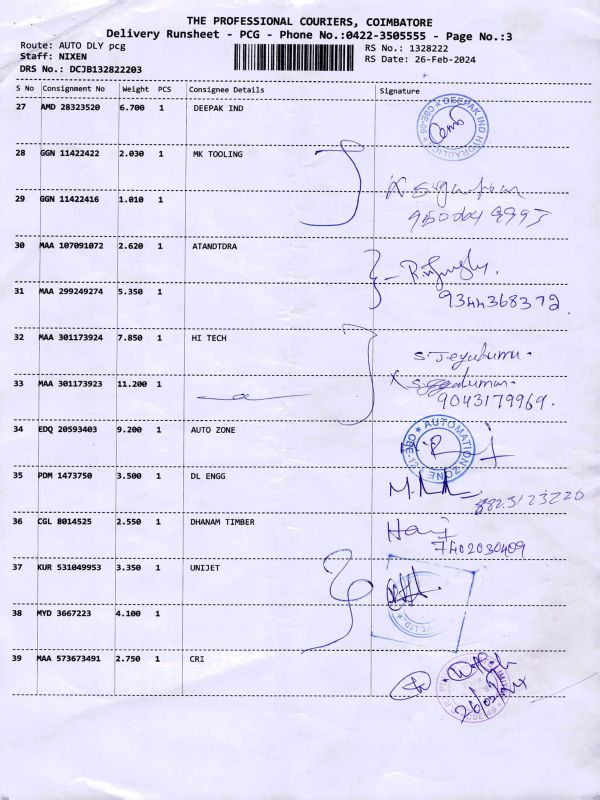 THE PROFESSIONAL COURIERS, COIMBATORE
Delivery Runsheet - PCG - Phone No.:0422-3505555 - Page No.:3
Route: AUTO DLY pcg
RS No.: 1328222
Staff: NIXEN
RS Date: 26-Feb-2024
DRS No.: DCJB132822203
S No Consignment No Weight PCS Consignee Details Signature
27 AMD 28323520 6.700 1 DEEPAK IND
DEEPAK IND HYDRAULIC CBE-06
28 GGN 11422422 2.030 1 MK TOOLING
29 GGN 11422416 1.010 1
30 MAA 107091072 2.620 1 ATANDTDRA
31 MAA 299249274 5.350 1
9344368372
32 MAA 301173924 7.850 1 HI TECH
S. Jeyakumar
33 MAA 301173923 11.200 1
9043179969
34 EDQ 20593403 9.200 1 AUTO ZONE
AUTOMATION ZONE CBE-12
35 PDM 1473750 3.500 1 DL ENGG
36 CGL 8014525 2.550 1 DHANAM TIMBER
Hari
7402030409
37 KUR 531049953 3.350 1 UNIJET
38 MYD 3667223 4.100 1
39 MAA 573673491 2.750 1 CRI
26/02/24